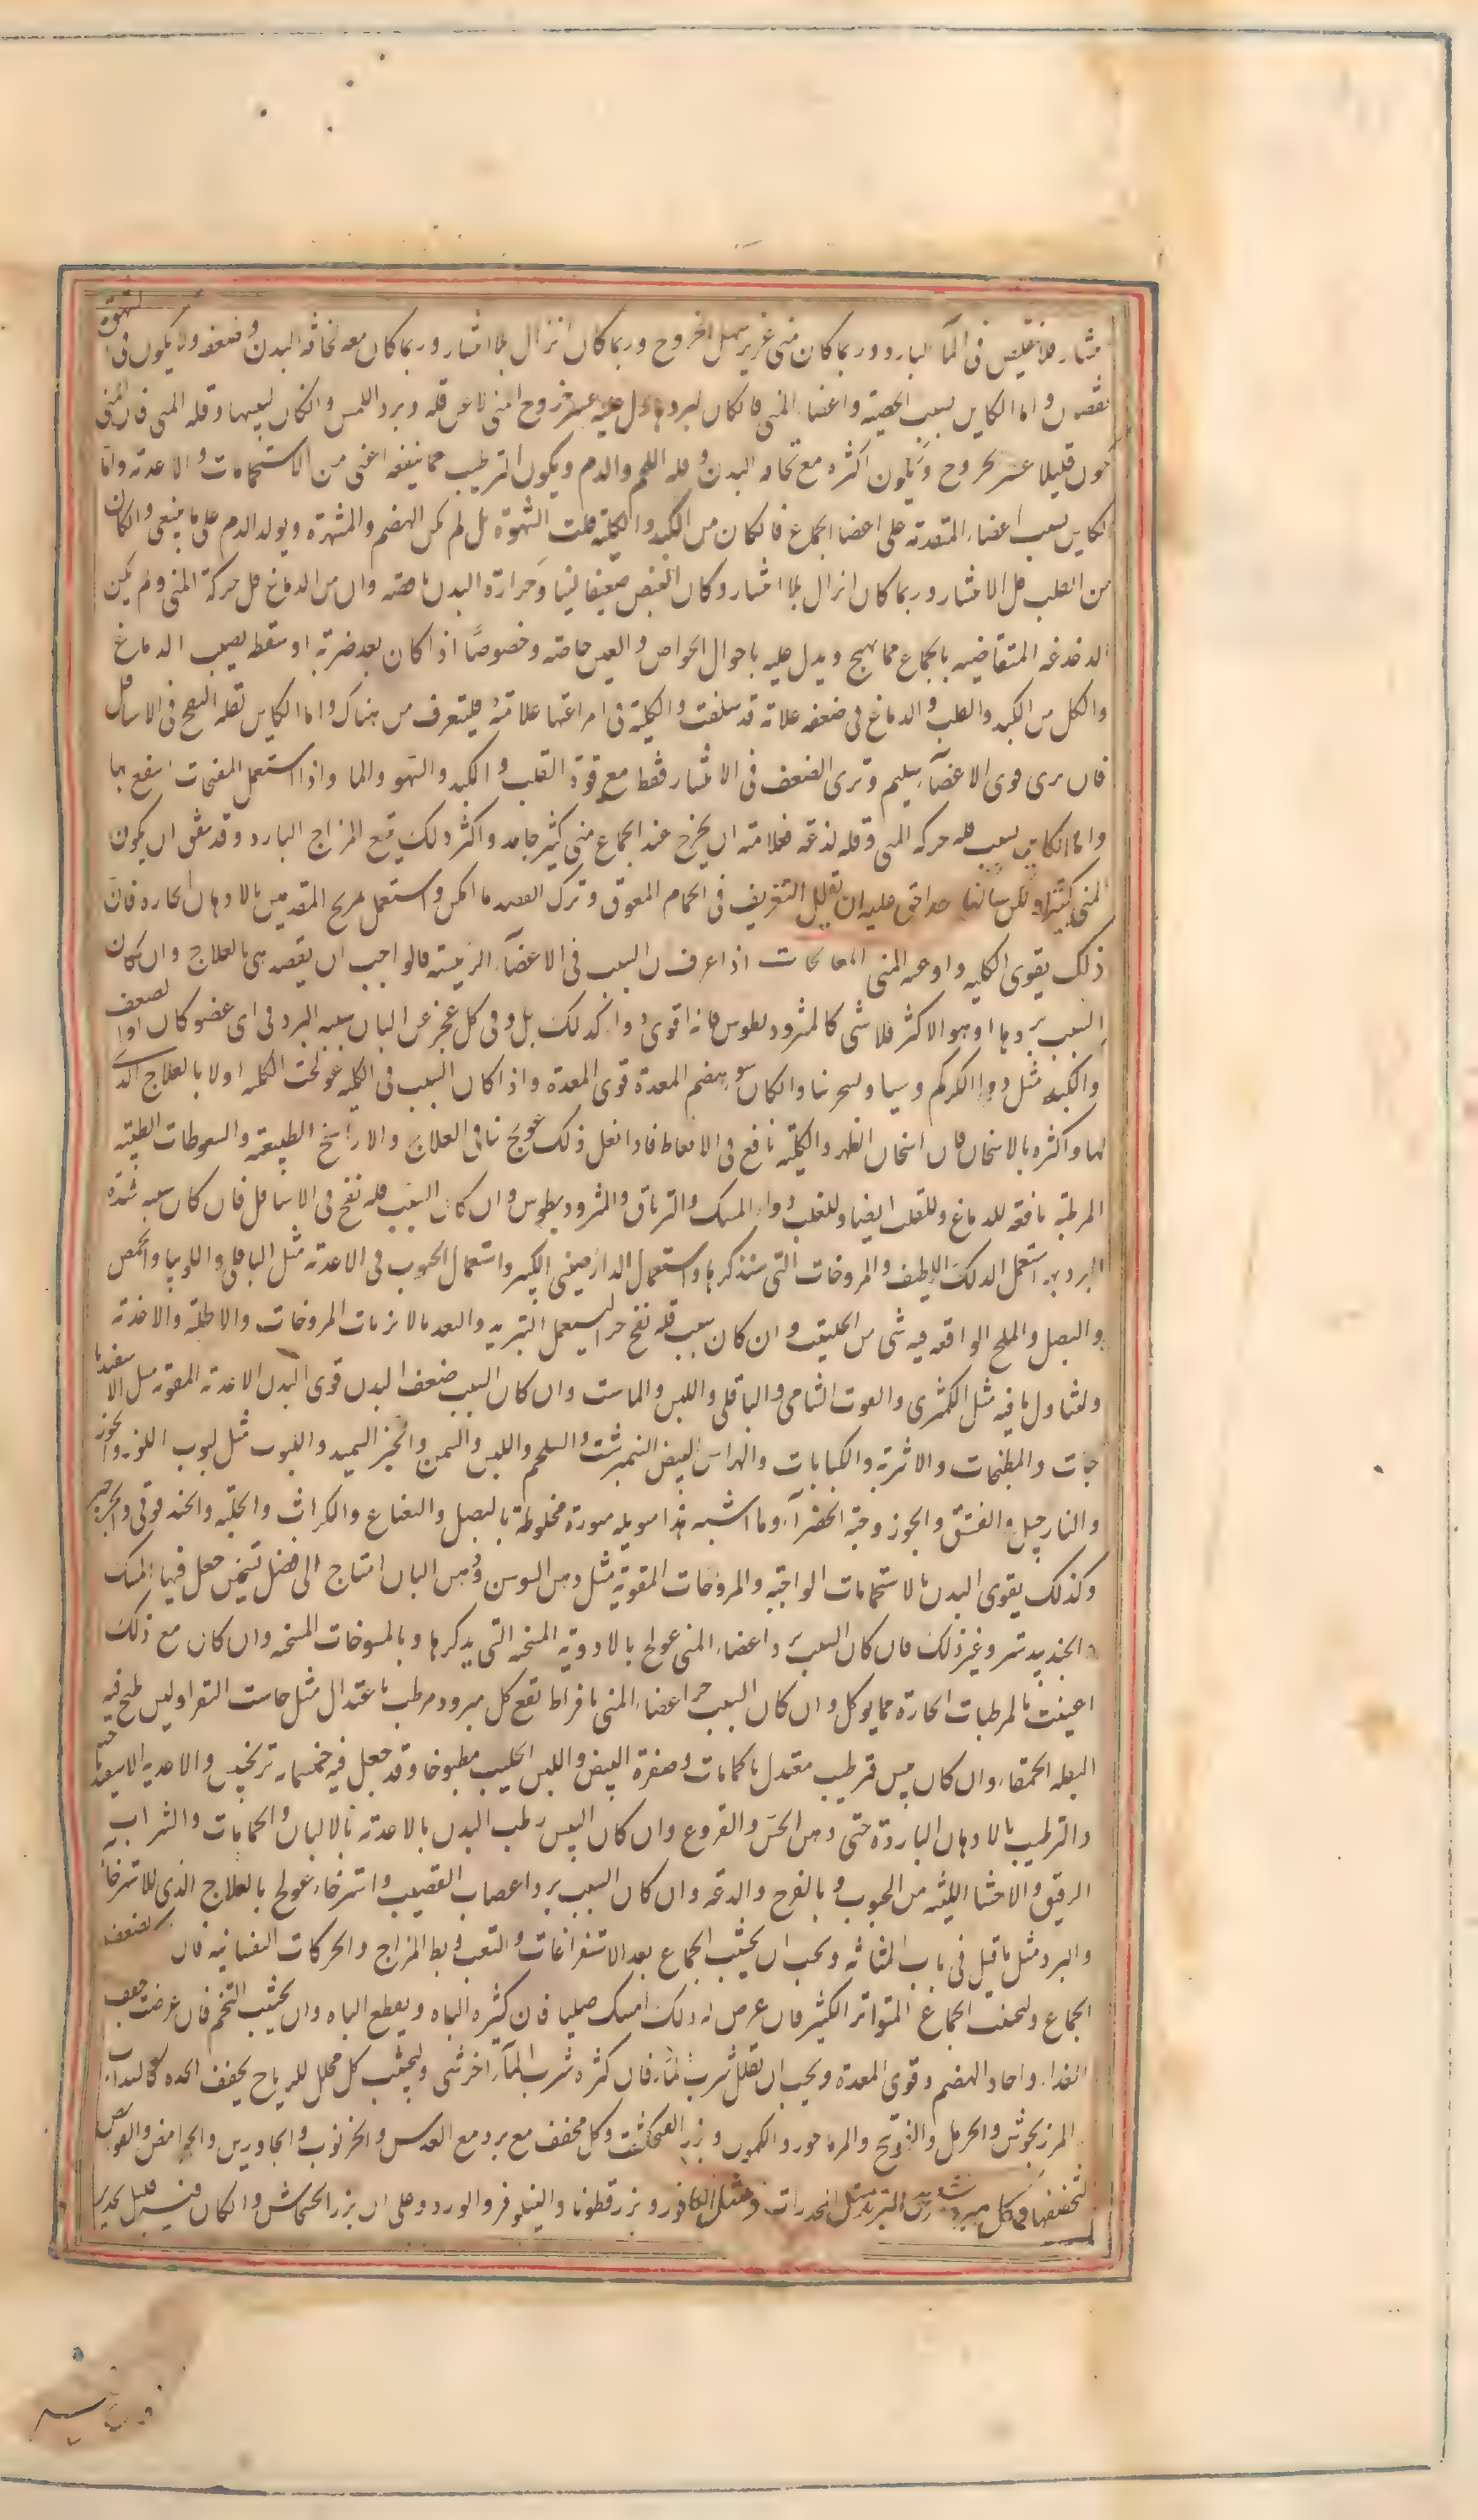 فلا يتقلص فى المآ البارد وربما كان منى غزير سهل الخروج وربما كان انزال بلا انتشار وربما كان معه نحافة البدن وضعفه ولا يكون فى الشهوة
نقصان واما الكاين بسبب الخصية واعضاء المنى فان كان لبرد دل عليه عسر خروج المنى لا عن قله وبرد اللمس وان كان ليبسها وقله المنى فان المنى
يكون قليلا عسر الخروج ويكون اكثره مع نحافه البدن وقله اللحم والدم ويكون الترطيب مما ينفعه اعنى من الاستحمامات والاغدية واما
الكاين بسبب اعضاء المتقدمة على اعضا الجماع فان كان من الكبد والكلية قلت الشهوة بل لم يكن الهضم والشهوة وتولد الدم على ما ينبغى وان كان
من القلب قل الانتشار وربما كان انزال بلا انتشار وكان النبض ضعيفا لينا وحرارة البدن ناقصه وان من الدماغ قل حركة المنى ولم يكن
الدغدغه المتقاضيه بالجماع مما يهيج ويدل عليه باحوال الحواس والعين خاصه وخصوصًا اذا كان بعد ضربة او سقطه يصيب الدماغ
والكل من الكبد والقلب والدماغ فى ضعفه علامة قد سلفت والكلية فى امراضها علامة فليتعرف من هناك واما الكاين لقله النفخ فى الاسافل
فان يرى قوى الاعضآء سليم وترى الضعف فى الانتشار فقط مع قوة القلب والكبد والشهو والما واذا استعمل المنفخات انتفع بها
واما الكاين بسبب قله حركه المنى وقله لذعه فعلامته ان يخرج عند الجماع منى كثير جامد واكثر ذلك يتبع المزاج البارد وقد يتفق ان يكون
المنى كثيرا ولكن ساكنا عليه ان تقليل التغريف فى الحمام المعرق وترك الفصد ما امكن واستعمل تمريخ القدمين بالادهان الحاره فان
ذلك يقوى الكليه واوعيه المنى المعالجات اذا عرف ان السبب فى الاعضآء الرئيسة فالواجب ان يقصد هى بالعلاج وان كان
السبب بردها وهو الاكثر فلا شى كالمثروديطوس فانه اقوى دواء كذلك بل وفى كل عجز عن الباه سببه البرد فى اى عضو كان او لضعف
والكبد مثل دوا الكركم وان كان سو هضم المعدة قوى المعدة واذا كان السبب فى الكليه عولجت الكله اولا بالعلاج الذى
لها واكثره بالاسخان فان اسخان الظهر والكلية نافع فى الانعاظ فاذا فعل ذلك عولج ثانى العلاج والاراييح الطيبه والسعوطات الطيبه
المرطبة نافعه للدماغ وللقلب ايضا وللقلب دواء المسك والترياق والمثروديطوس وان كان السبب قله نفخ فى الاسافل فان كان سببه شدة
البرد بها استعمل الدلك اللطيف والمروخات التى سنذكرها واستعمال الدارصينى الكثير واستعمال الحبوب فى الاغدية مثل الباقلى واللوبيا والحمص
والبصل والملح الواقعه فيه شى من الحلتيت وان كان بسبب قله نفخ حرا ليستعمل التبريد والمروخات والاطلية والاغذية
ولتناول ما فيه مثل الكمثرى والتوت الشامى والباقلى واللبن والماست وان كان السبب ضعف البدن قوى البدن الاغدية المقويه مثل الاسفيدبا
جات والمطنجات والاشربة والكبابات والهرايس البيض النمبرشت والسلجم واللبن والسمن والخبز السميد واللبوب مثل لبوب اللوز والجوز
والنارجيل والفستق والجوز وحبة الخضرآء وما اشبه هذا مخلوطة بالبصل والنعناع والكراث والحلبه والحندقوقى والجرجير
وكذلك يقوى البدن بالاستحمامات الواجبه والمروخات المقوية مثل دهن السوسن ودهن البان احتاج الى فضل تسخين جعل فيها المسك
والجندبيدستر وغير ذلك فان كان السبب برد اعضاء المنى عولج بالادوية المسخنه التى يذكرها وبالمسوحات المسخنه وان كان مع ذلك
اعينت بالمرطبات الحارة مما يوكل وان كان السبب حر اعضاء المنى بافراط نفع كل مبرد مرطب باعتدال مثل ماست البقر او لبن طبخ فيه
البقله الحمقاء وان كان يبس فترطيب معتدل بالحمامات وصفرة البيض واللبن الحليب مطبوخا وقد جعل فيه خمسمايه ترنجبين والاغديه الاسفيدباجيه
والترطيب بالادهان الباردة حتى دهن الخس والقرع وان كان اليبس رطب البدن بالاغدية بالالبان والحمامات والشراب
الرقيق والاحشا اللينه من الحبوب وبالفرح والدعة وان كان السبب برد اعصاب القضيب واسترخاء عولج بالعلاج الذى للاسترخاء
والبرد مثل ما قيل فى باب المثانه ويجب ان يجتنب الجماع بعد الاستفراغات والتعب والحركات النفسانيه فان
الجماع وليجتنب الجماع المتواتر الكثير فان عرض له ذلك امسك مليا فان كثره الباه ويقطع الباه وان يجتنب التخم فان عرضت خفف
الغذاء واجاد الهضم وقوى المعدة ويجب ان تقلل شرب المآء فان كثره شرب المآء اضر شى وليجتنب كل محلل للرياح يجفف الحده كالسداب
المرزنجوش والحرمل والفوتنج والمرماحور والكمون وبزر الفنجنكشت وكل مجفف مع برد مع العدس والخرنوب والجاورس والحوامض والقوابض
لتجفيفها وكل مبرد شديد التبريد مثل المخدرات ومثل الكافور وبزرقطونا والنيلوفر والورد وعلى ان بزر الخشخاش وان كان فيه قليل تخدير